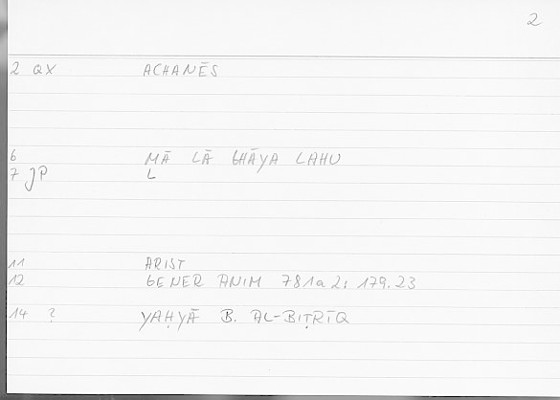 2
2 QX ACHANĒS
6 MĀ LĀ GHĀYA LAHU
7 JP L
11 ARIST
12 GENER ANIM 781a2; 179.23
14 ? YAḤYĀ B. AL-BIṬRĪQ